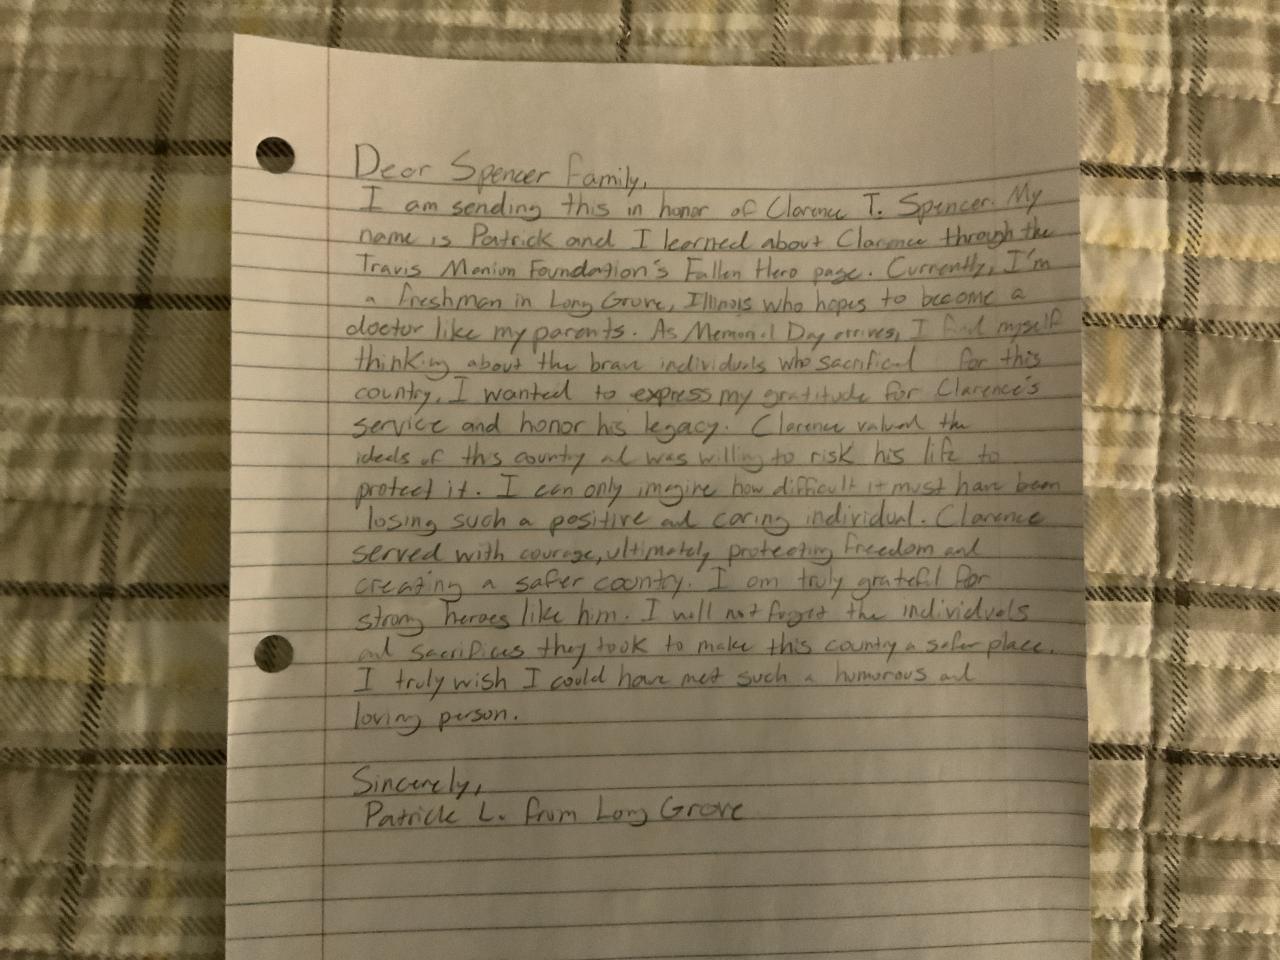 Dear Spencer Family,
I am sending this in honor of Clarence T. Spencer. My
name is Patrick and I learned about Clarence through the
Travis Manion Foundation's Fallen Hero page. Currently, I'm
a freshman in Long Grove, Illinois who hopes to become a
doctor like my parents. As Memorial Day arrives, I find myself
thinking about the brave individuals who sacrificed for this
country. I wanted to express my gratitude for Clarence's
service and honor his legacy. Clarence valued the
ideals of this country and was willing to risk his life to
protect it. I can only imagine how difficult it must have been
losing such a positive and caring individual. Clarence
served with courage, ultimately protecting freedom and
creating a safer country. I am truly grateful for
strong heroes like him. I will not forget the individuals
and sacrifices they took to make this country a safer place.
I truly wish I could have met such a humorous and
loving person.
Sincerely,
Patrick L. from Long Grove